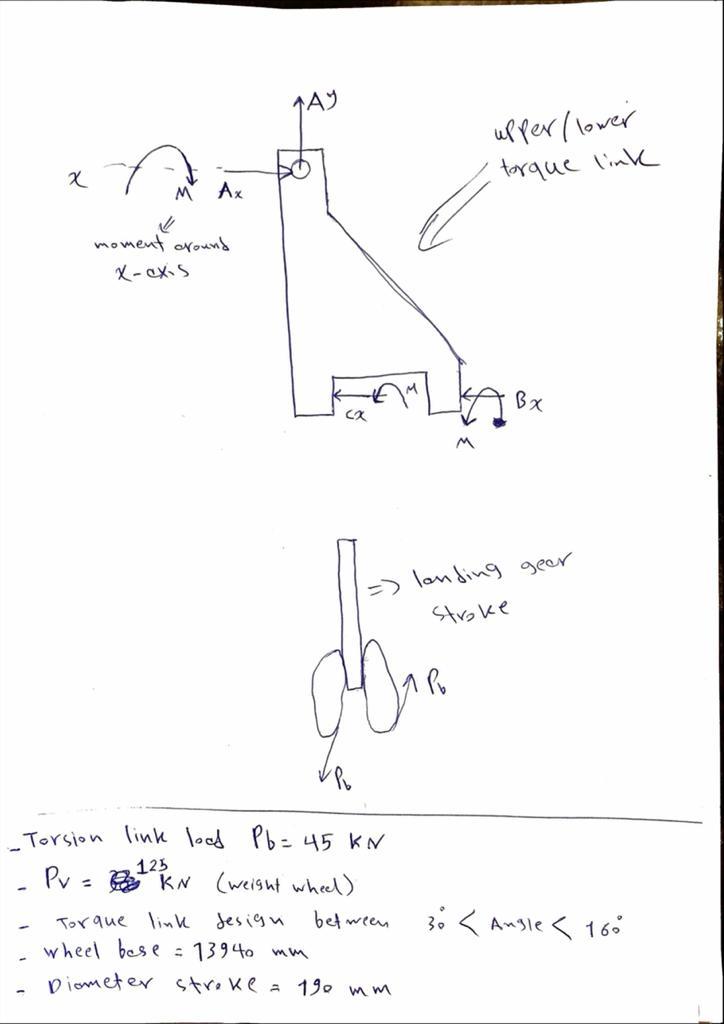 Ay
upper/lower
torque link
x
M
Ax
moment around
x-axis
M
Cx
Bx
M
=> landing gear
stroke
Pb
Pb
- Torsion link load Pb = 45 KN
- Pv = 125 KN (weight wheel)
- Torque link design between 30° < Angle < 160°
- wheel base = 13940 mm
- Diameter stroke = 190 mm